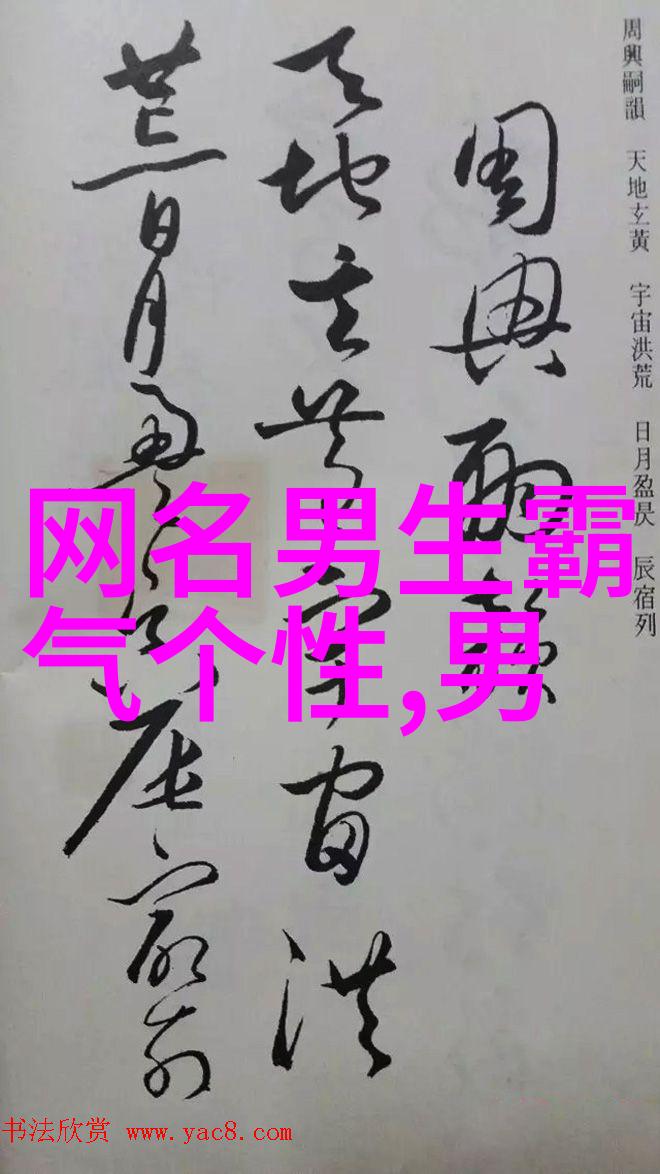 周興嗣韻 天地玄黃 宇宙洪荒 日月盈昃 辰宿列
周興嗣韻
天地玄黃宇宙洪
荒日月盈昃辰宿列
网名男生霸
气个性,男
书法欣赏 www.yac8.com